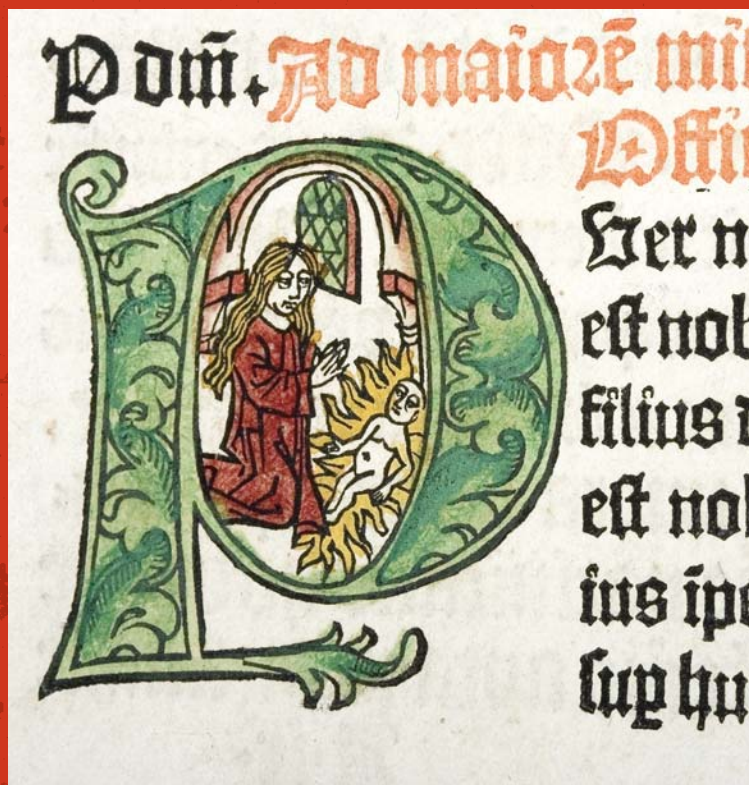 P dm̄. Ad maiorē mi
Offi
PUer n
est nob
filius
est nob
ius īpe
suꝑ hu